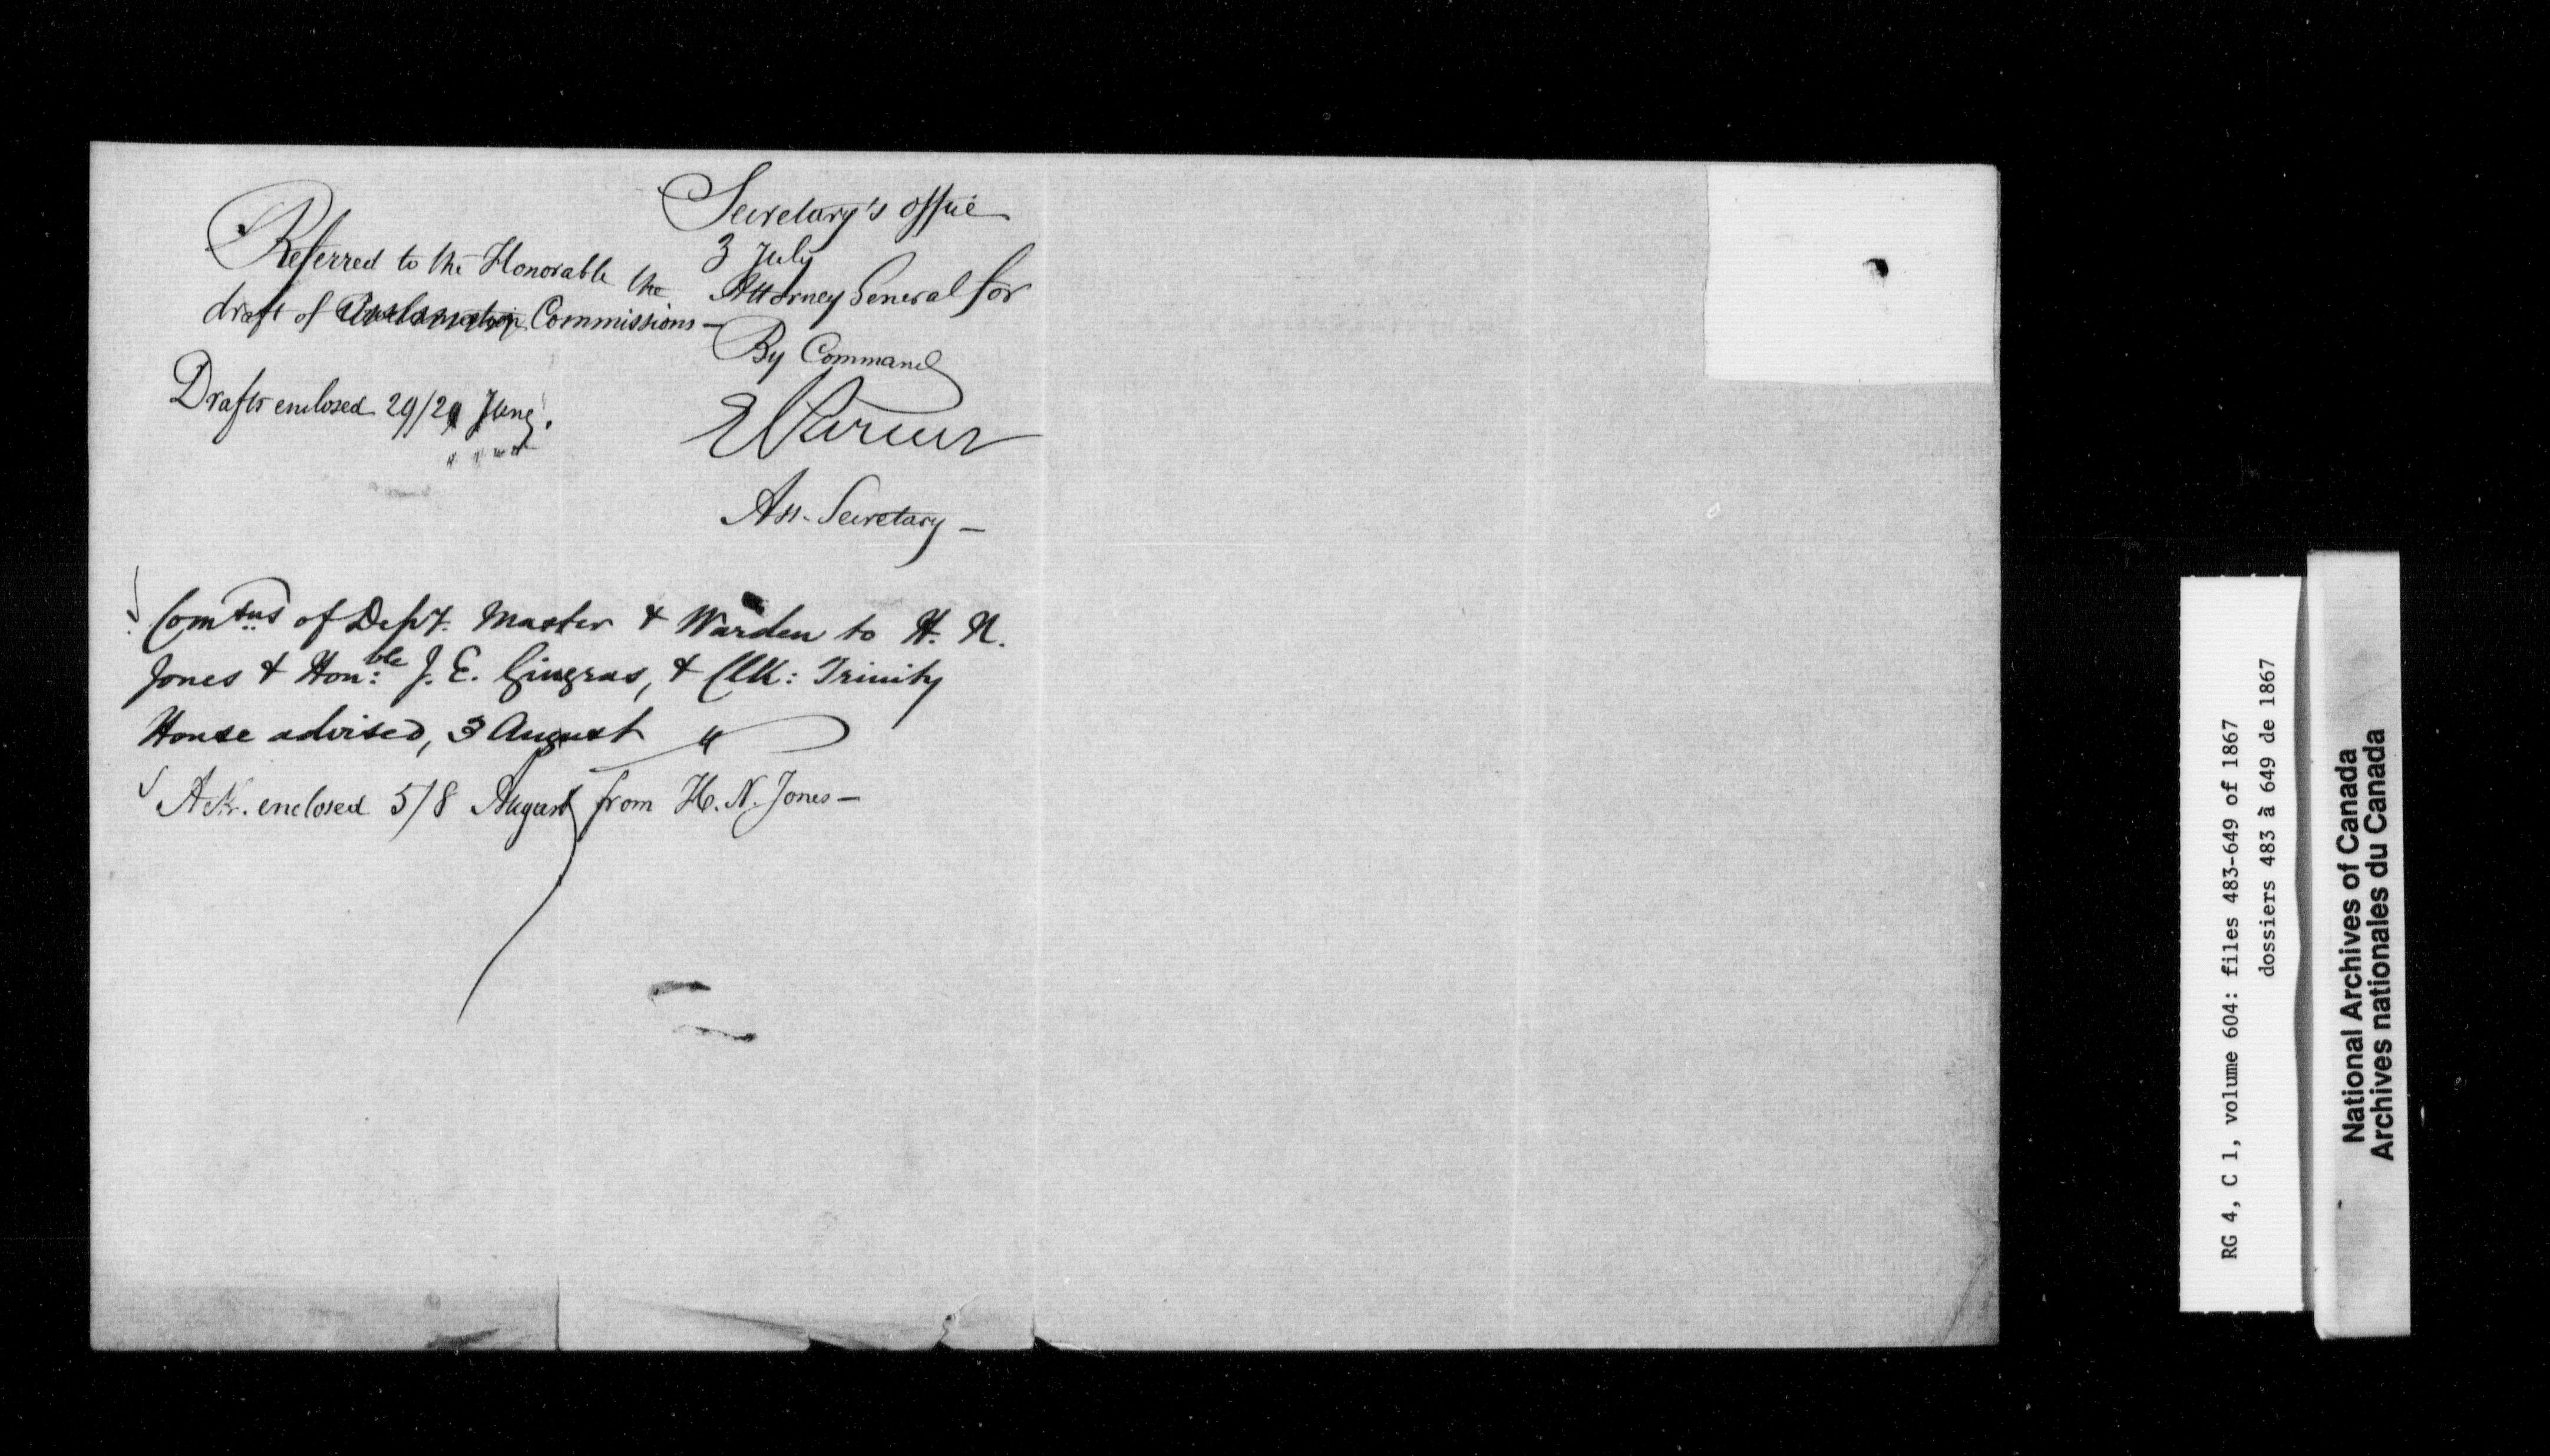 Secretary's office
3 July
Referred to the Honorable the Attorney General for
draft of Proclamation Commissions —
By Command
E Parent
Ass. Secretary —
Drafts enclosed 29/29 June.
Comsns of Depy. Master & Warden to H. N.
Jones & Hon:ble J. E. Gingras, & Clk: Trinity
House advised, 3 August "
Ack. enclosed 5/8 August from H. N. Jones —
RG 4, C 1, volume 604: files 483-649 of 1867
dossiers 483 à 649 de 1867
National Archives of Canada
Archives nationales du Canada